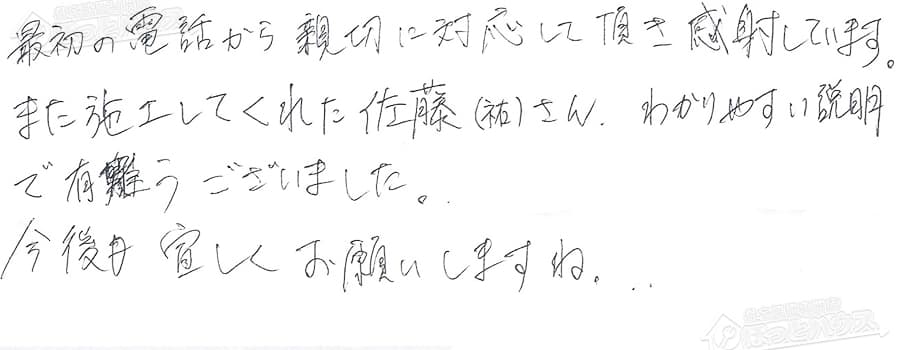 最初の電話から親切に対応して頂き感射しています。
また施工してくれた佐藤(祐)さん、わかりやすい説明
で有難うございました。
今後も宜しくお願いしますね。..
ほっとハウス